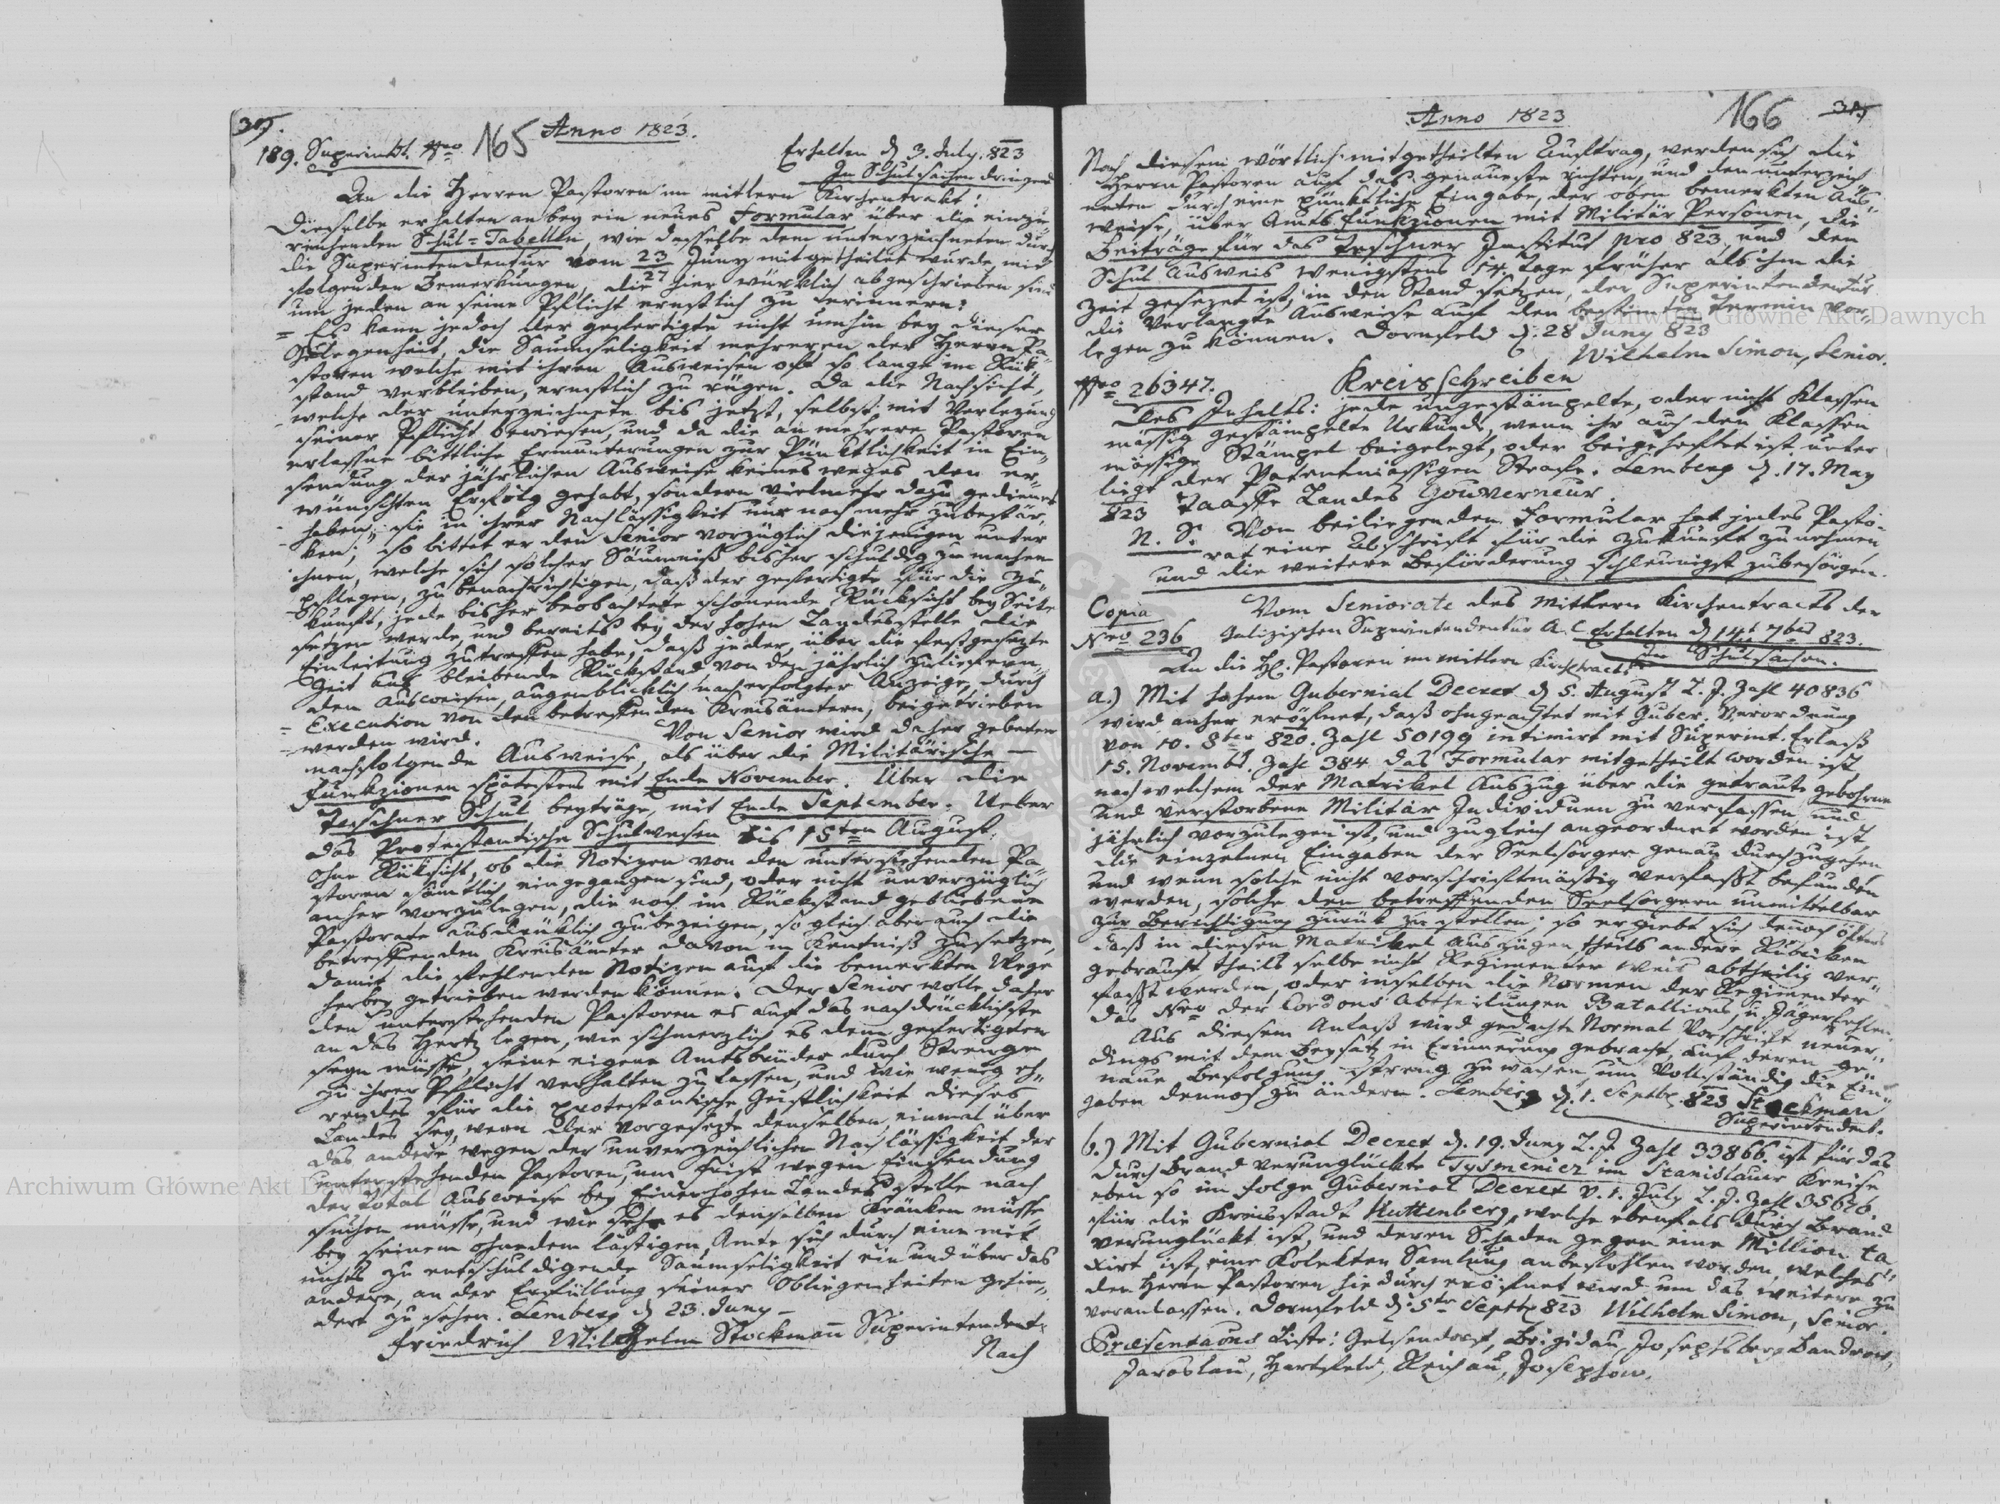 165 Anno 1823.
189. Superintdt. Nro Erhalten d. 3. July. 823
In Schulsachen dringend
An die Herren Pastoren im mittlern Kirchentrakt!
Dieselbe erhalten anbey ein neues Formular über die einzu
reichenden Schul-Tabellen, wie dasselbe dem unterzeichneten durch
die Superintendentur vom 23/27 Juny mitgetheilet wurde mit
folgenden Bemerkungen, die hier würklich abgeschrieben sind
um jeden an seine Pflicht ernstlich zu erinnern:
= Es kann jedoch der gefertigte nicht umhin bey dieser
Gelegenheit, die Saumseligkeit mehreren der Herrn Pa-
storen welche mit ihren Ausweisen oft so lange im Rük-
stand verbleiben, ernstlich zu rügen. Da die Nachsicht,
welche der unterzeichnete bis jetzt, selbst mit Verlezung
seiner Pflicht bewiesen, und da die an mehrere Pastoren
erlassene bittliche Ermunterungen zur Pünktlichkeit in Ein-
sendung der jährlichen Ausweise keinesweges den er-
wünschten Erfolg gehabt, sondern vielmehr dazu gedienet
haben, sie in ihrer Nachlässigkeit nur noch mehr zubestär-
ken; so bittet er den Senior vorzüglich diejenigen unter
ihnen, welche sich solcher Säumniß bisher schuldig zu machen
pflegen, zu benachrichtigen, daß der gefertigte für die Zu-
kunft, jede bisher beobachtete schonende Rücksicht bey Seite
setzen werde, und bereits bey der hohen Landesstelle die
Einleitung zutreffen habe, daß jeder, über die festgesezte
Zeit aus bleibende Rückstand von den jährlich zuliefern-
den Ausweisen, augenblicklich nach erfolgter Anzeige, durch
Execution von den betreffenden Kreisämtern, beigetrieben
werden wird. Von Senior wird daher gebeten
nachfolgende Ausweise, als über die Militärische
Funkzionen spätestens mit Ende November. Über die
Teschner Schul beyträge, mit Ende September. Ueber
das Protestantische Schulwesen bis 15ten August.
ohne Rüksicht, ob die Notizen von den unterstehenden Pa-
storen sämtlich eingegangen sind, oder nicht unverzüglich
anher vorzulegen, die noch im Rückstand gebliebene
Pastorate ausdrüklich zubezeigen, so gleich aber auch die
betreffenden Kreisämter davon in Kentniß zusetzen,
damit die fehlenden Notizen auf die bemerkten Wege
herbey getrieben werden können. Der Senior wolle daher
den unterstehenden Pastoren es auf das nachdrücklichste
an das Hertz legen, wie schmerzlich es dem gefertigten
seyn müsse, seine eigene Amtsbrüder durch Strenge
zu ihrer Pflicht verhalten zu lassen, und wie wenig eh-
rendes für die protestantische Geistlichkeit dieses
Landes sey, wenn der Vorgesezte denselben, einmal über
das andere wegen der unverzeihlichen Nachlässigkeit der
unterstehenden Pastoren, um Frist wegen Einsendung
der total Ausweise bey Einer hohen Landes stelle nach
suchen müsse, und wie sehr es denselben kränken müsse
bey seinem ohnedem lästigen Amte sich durch eine mit
nichts zu entschuldigende Saumseligkeit ein und über das
andere, an der Erfüllung seiner Obliegenheiten gehin-
dert zu sehen. Lemberg d. 23. Juny
Friedrich Wilhelm Stockmann Superintendent.
Nach
Anno 1823 166
Nach diesem wörtlich mitgetheilten Auftrag, werden sich die
Herrn Pastoren auf das genaueste richten, und den unterzeich
neten durch eine pünktliche Eingabe, der oben bemerkten Aus-
weise, über Amtsfunkzionen mit Militär Personen, die
Beiträge für das Teschner Institut pro 823, und den
Schul Ausweis wenigstens 14. Tage früher als ihm die
Zeit gesezet ist, in den Stand setzen, der Superintendentur
die verlangte Ausweise auf den bestimten Termin vor-
legen zu können. Dornfeld d. 28 Juny 823
Wilhelm Simon, Senior.
Nro 26347. Kreisschreiben
Des Inhalts: jede ungestämpelte, oder nicht klassen
mässig gestämpelte Urkunde, wenn ihr auch den klassen
mässige Stämpel beigelegt, oder beigeheftet ist unter
liegt der Patentmässigen Strafe. Lemberg d. 17. May
823 Taaffe Landes Gouverneur.
N. S. Von beiliegenden Formular hat jedes Pasto-
rat eine Abschrift für die Zukunft zu nehmen
und die weitere Beförderung schleunigst zubesorgen.
Copia Vom Seniorate des Mittlern Kirchentracts der
Nro 236 Galizischen Superintendentur A. C. Erhalten d 14t 7ber 823.
In Schulsachen.
An die H. Pastoren im mittlern Kirchtracte
a.) Mit hohem Gubernial Decret d 5. August l. J. Zahl 40836
wird anher eröfnet, daß ohngeachtet mit Guber. Verordnung
von 10. 8ber 820. Zahl 50199 intimirt mit Superint. Erlaß
15. Novemb. Zahl 384 das Formular mitgetheilt worden ist
nach welchem der Matrikel Auszug über die getraute gebohrne
und verstorbene Militär Individuen zu verfassen und
jährlich vorzulegen ist, und zugleich angeordnet worden ist
die einzelnen Eingaben der Seelsorger genau durchzugehen
und wenn solche nicht vorschriftmässig verfasst befunden
werden, solche den betreffenden Seelsorgern unmittelbar
zur Berichtigung zurük zu stellen; so ergiebt sich dennoch öfters
daß in diesen Matrikel Auszügen theils andere Rubriken
gebraucht theils selbe nicht Regimenter weis abtheilig ver-
faßt werden, oder inselben die Normen der Regimenter
das Nro der Cordons Abtheilungen Batallions, u. Jäger fehlen.
Aus diesem Anlaß wird gedachte Normal Vorschrift neuer-
dings mit dem Beysatz in Erinnerung gebracht, auf deren ge-
naue Befolgung streng zu wachen, um Vollständig die Ein-
gaben dennoch zu ändern. Lemberg d. 1. Septbr. 823 Stockman
Superintendent.
b.) Mit Gubernial Decret d. 19. Juny l. J. Zahl 33866. ist für das
durch Brand verunglückte Tysmenicz im Stanislauer Kreise
eben so im Folge Gubernial Decret v. 1. July l. J. Zahl 35626.
für die Kreisstadt Kuttenberg, welche ebenfals durch Brand
verunglückt ist, und deren Schaden gegen eine Million ta-
xirt ist, eine Kolekten Samlung anbefohlen worden, welches
den Herrn Pastoren hiedurch eröfnet wird um das weitere zu
veranlassen. Dornfeld d. 5ten Septbr 823 Wilhelm Simon, Senior.
Præsentaons Liste: Gelsendorf, Brigidau, Josephsberg, Bandrow,
Jaroslau, Hartfeld, Reichau, Josephow.
Archiwum Główne Akt Dawnych
Archiwum Główne Akt Dawnych